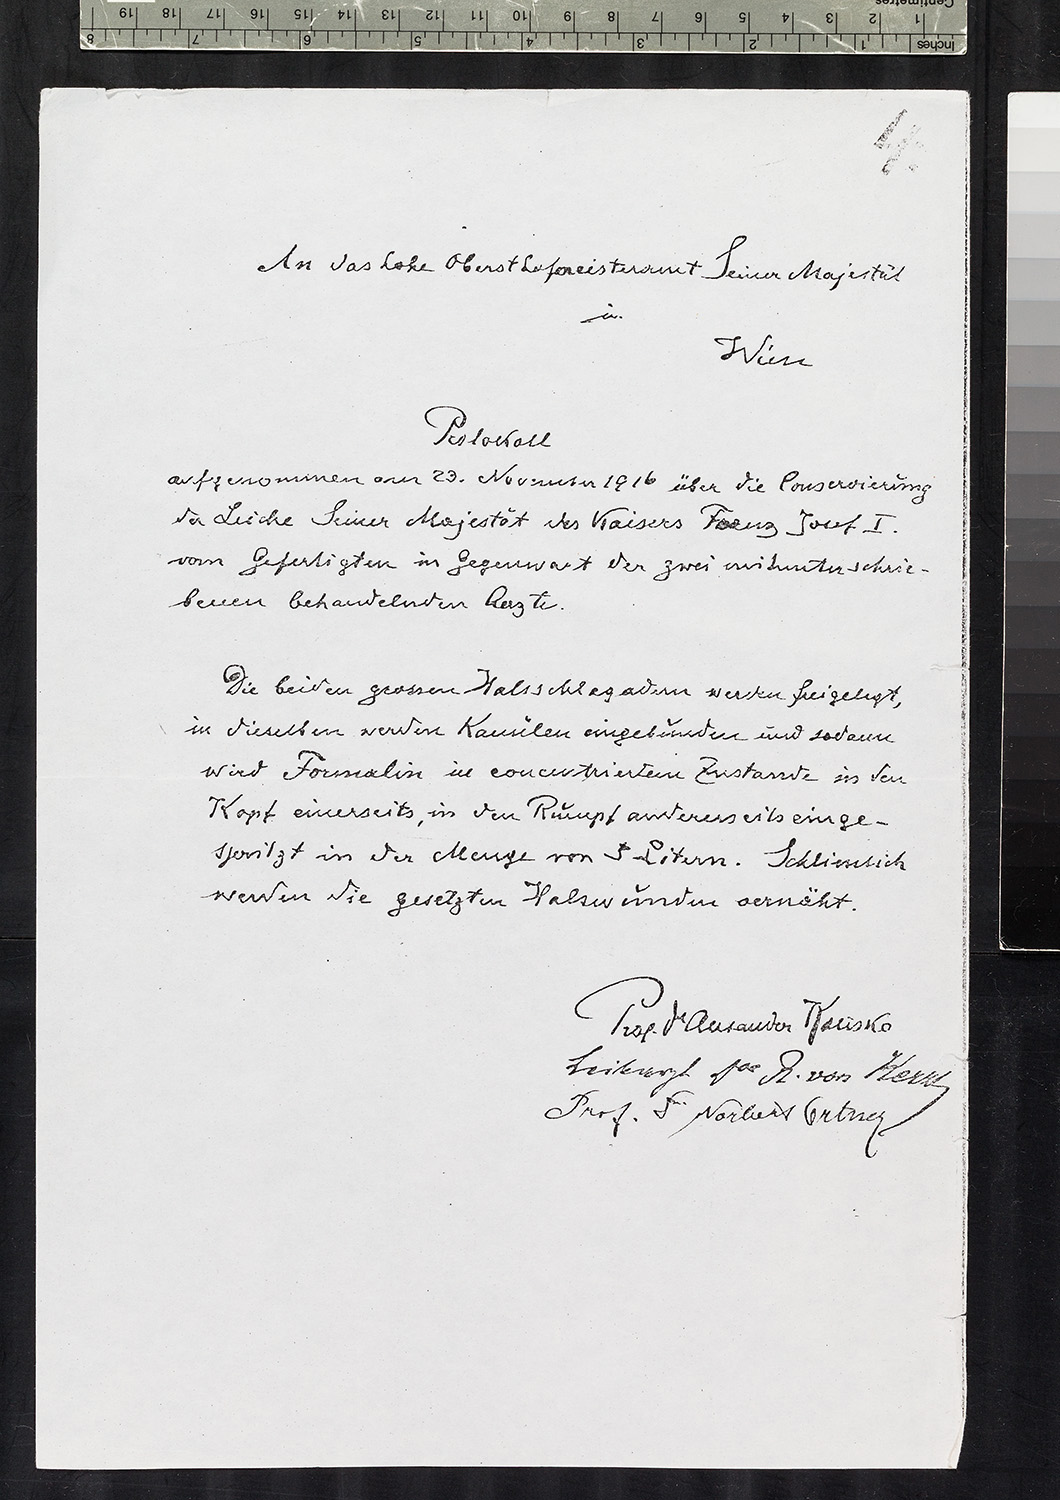 An das hohe Obersthofmeisteramt Seiner Majestät
in
Wien
Protokoll
aufgenommen am 23. November 1916 über die Conservierung
der Leiche Seiner Majestät des Kaisers Franz Josef I.
vom Gefertigten in Gegenwart der zwei mitunterschrie-
benen behandelnden Aerzte.
Die beiden grossen Halsschlagadern werden freigelegt,
in dieselben werden Kanülen eingebunden und sodann
wird Formalin in concentriertem Zustande in den
Kopf einerseits, in den Rumpf andererseits einge-
spritzt in der Menge von 5 Litern. Schliesslich
werden die gesetzten Halswunden vernäht.
Prof. Dr Alexander Kolisko
Leibarzt Dr R. von Kerzl
Prof. Dr Norbert Ortner